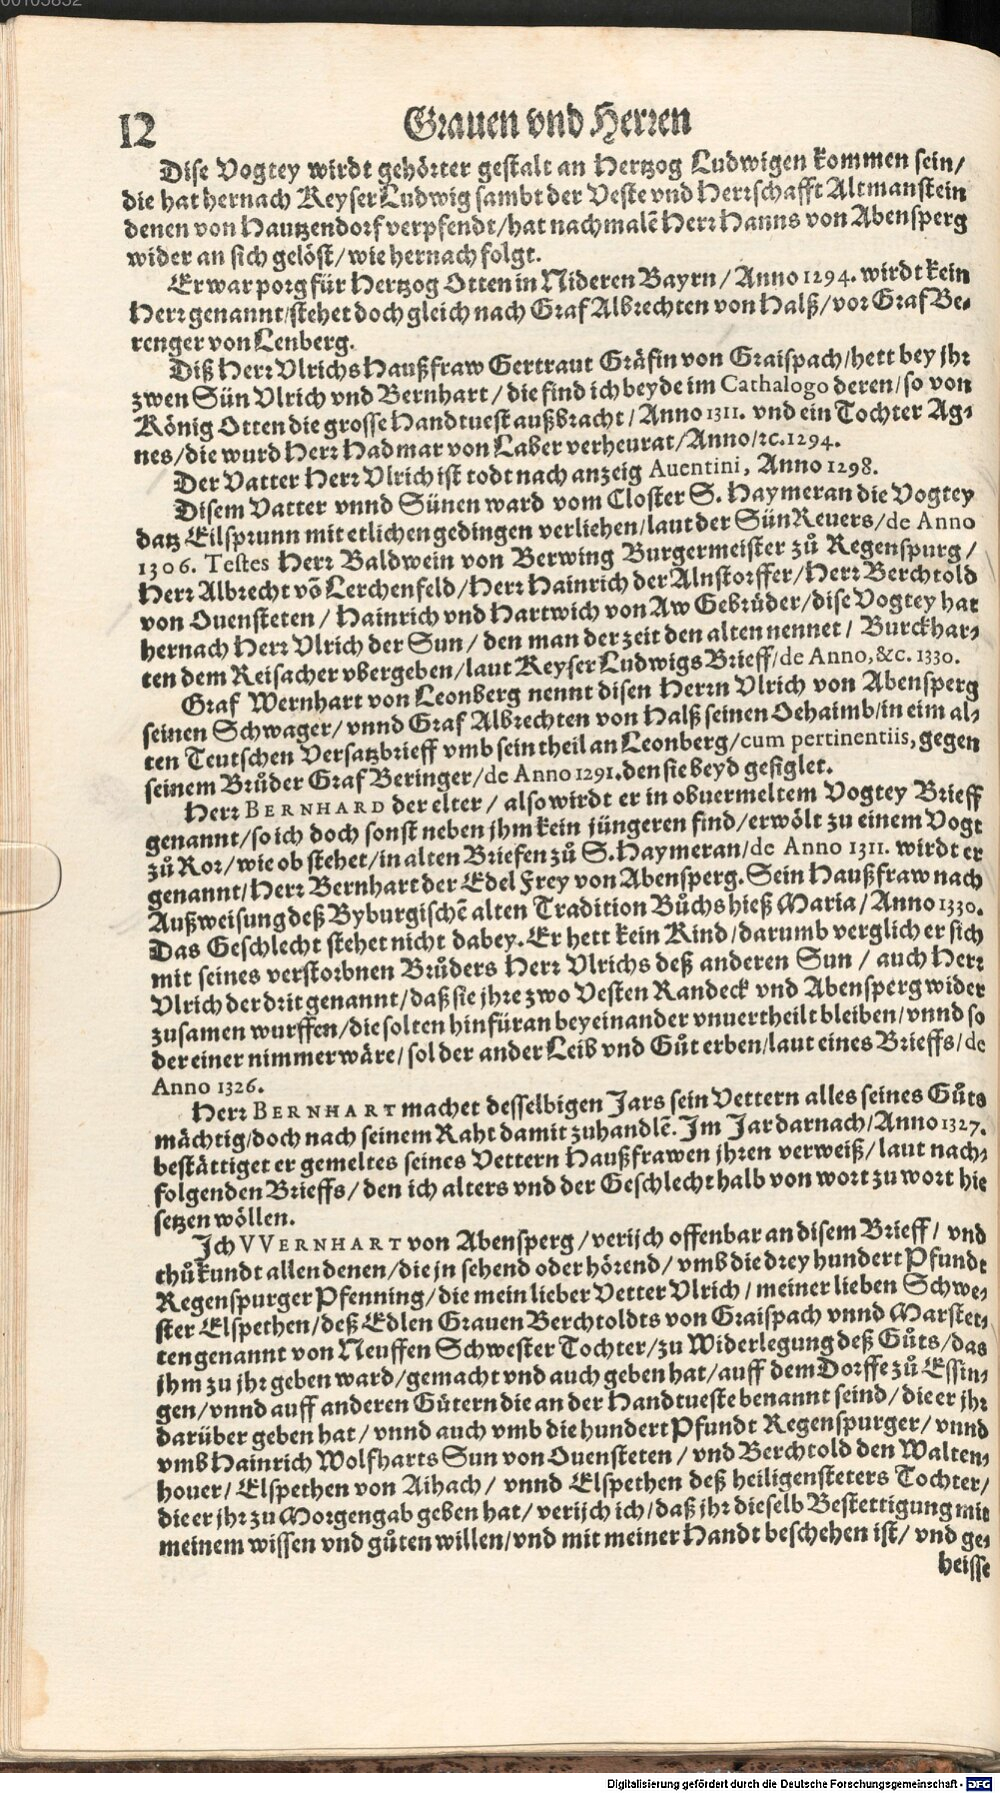 00105852
12 Grauen vnd Herren
Dise Vogtey wirdt gehörter gestalt an Hertzog Ludwigen kommen sein/
die hat hernach Keyser Ludwig sambt der Veste vnd Herrschafft Altmanstein
denen von Hautzendorf verpfendt/hat nachmalẽ Herr Hanns von Abensperg
wider an sich gelöst/wie hernach folgt.
Er war porg für Hertzog Otten in Nideren Bayrn/Anno 1294. wirdt kein
Herr genannt/stehet doch gleich nach Graf Albrechten von Halß/vor Graf Be-
renger von Lenberg.
Diß Herr Vlrichs Haußfraw Gertraut Gräfin von Graispach/hett bey jhr
zwen Sün Vlrich vnd Bernhart/die find ich beyde im Cathalogo deren/so von
König Otten die grosse Handtuest außbracht/Anno 1311. vnd ein Tochter Ag-
nes/die wurd Herr Hadmar von Laber verheurat/Anno/ꝛc. 1294.
Der Vatter Herr Vlrich ist todt nach anzeig Auentini, Anno 1298.
Disem Vatter vnnd Sünen ward vom Closter S. Haymeran die Vogtey
datz Eilsprunn mit etlichen gedingen verliehen/laut der Sün Reuers/de Anno
1306. Testes Herr Baldwein von Berwing Burgermeister zů Regenspurg/
Herr Albrecht võ Lerchenfeld/Herr Hainrich der Alnstorffer/Herr Berchtold
von Ouensteten/Hainrich vnd Hartwich von Aw Gebrüder/dise Vogtey hat
hernach Herr Vlrich der Sun/den man der zeit den alten nennet/Burckhar-
ten dem Reisacher vbergeben/laut Keyser Ludwigs Brieff/de Anno,&c. 1330.
Graf Wernhart von Leonberg nennt disen Herrn Vlrich von Abensperg
seinen Schwager/vnnd Graf Albrechten von Halß seinen Oehaimb/in eim al-
ten Teutschen Versatzbrieff vmb sein theil an Leonberg/cum pertinentiis, gegen
seinem Brůder Graf Beringer/de Anno 1291. den sie beyd gesiglet.
Herr BERNHARD der elter/also wirdt er in obuermeltem Vogtey Brieff
genannt/so ich doch sonst neben jhm kein jüngeren find/erwölt zu einem Vogt
zů Ror/wie ob stehet/in alten Briefen zů S. Haymeran/de Anno 1311. wirdt er
genannt/Herr Bernhart der Edel Frey von Abensperg. Sein Haußfraw nach
Außweisung deß Byburgischẽ alten Tradition Bůchs hieß Maria/Anno 1330.
Das Geschlecht stehet nicht dabey. Er hett kein Kind/darumb verglich er sich
mit seines verstorbnen Brůders Herr Vlrichs deß anderen Sun/auch Herr
Vlrich der drit genannt/daß sie jhre zwo Vesten Randeck vnd Abensperg wider
zusamen wurffen/die solten hinfüran bey einander vnuertheilt bleiben/vnnd so
der einer nimmer wäre/sol der ander Leib vnd Gůt erben/laut eines Brieffs/de
Anno 1326.
Herr BERNHART machet desselbigen Jars sein Vettern alles seines Gůts
mächtig/doch nach seinem Raht damit zuhandlẽ. Im Jar darnach/Anno 1327.
bestättiget er gemeltes seines Vettern Haußfrawen jhren verweiß/laut nach-
folgenden Brieffs/den ich alters vnd der Geschlecht halb von wort zu wort hie
setzen wöllen.
Ich VVERNHART von Abensperg/verijch offenbar an disem Brieff/vnd
thů kundt allen denen/die jn sehend oder hörend/vmb die drey hundert Pfundt
Regenspurger Pfenning/die mein lieber Vetter Vlrich/meiner lieben Schwe-
ster Elspethen/deß Edlen Grauen Berchtoldts von Graispach vnnd Marstet-
ten genannt von Neuffen Schwester Tochter/zu Widerlegung deß Gůts/das
jhm zu jhr geben ward/gemacht vnd auch geben hat/auff dem Dorffe zů Essin-
gen/vnnd auff anderen Gütern die an der Handtueste benannt seind/die er jhr
darüber geben hat/vnnd auch vmb die hundert Pfundt Regenspurger/vnnd
vmb Hainrich Wolfharts Sun von Ouensteten/vnd Berchtold den Walten-
houer/Elspethen von Aihach/vnnd Elspethen deß heiligensteters Tochter/
die er jhr zu Morgengab geben hat/verijch ich/daß jhr dieselb Bestettigung mit
meinem wissen vnd gůten willen/vnd mit meiner Handt beschehen ist/vnd ge-
heisse
Digitalisierung gefördert durch die Deutsche Forschungsgemeinschaft - DFG